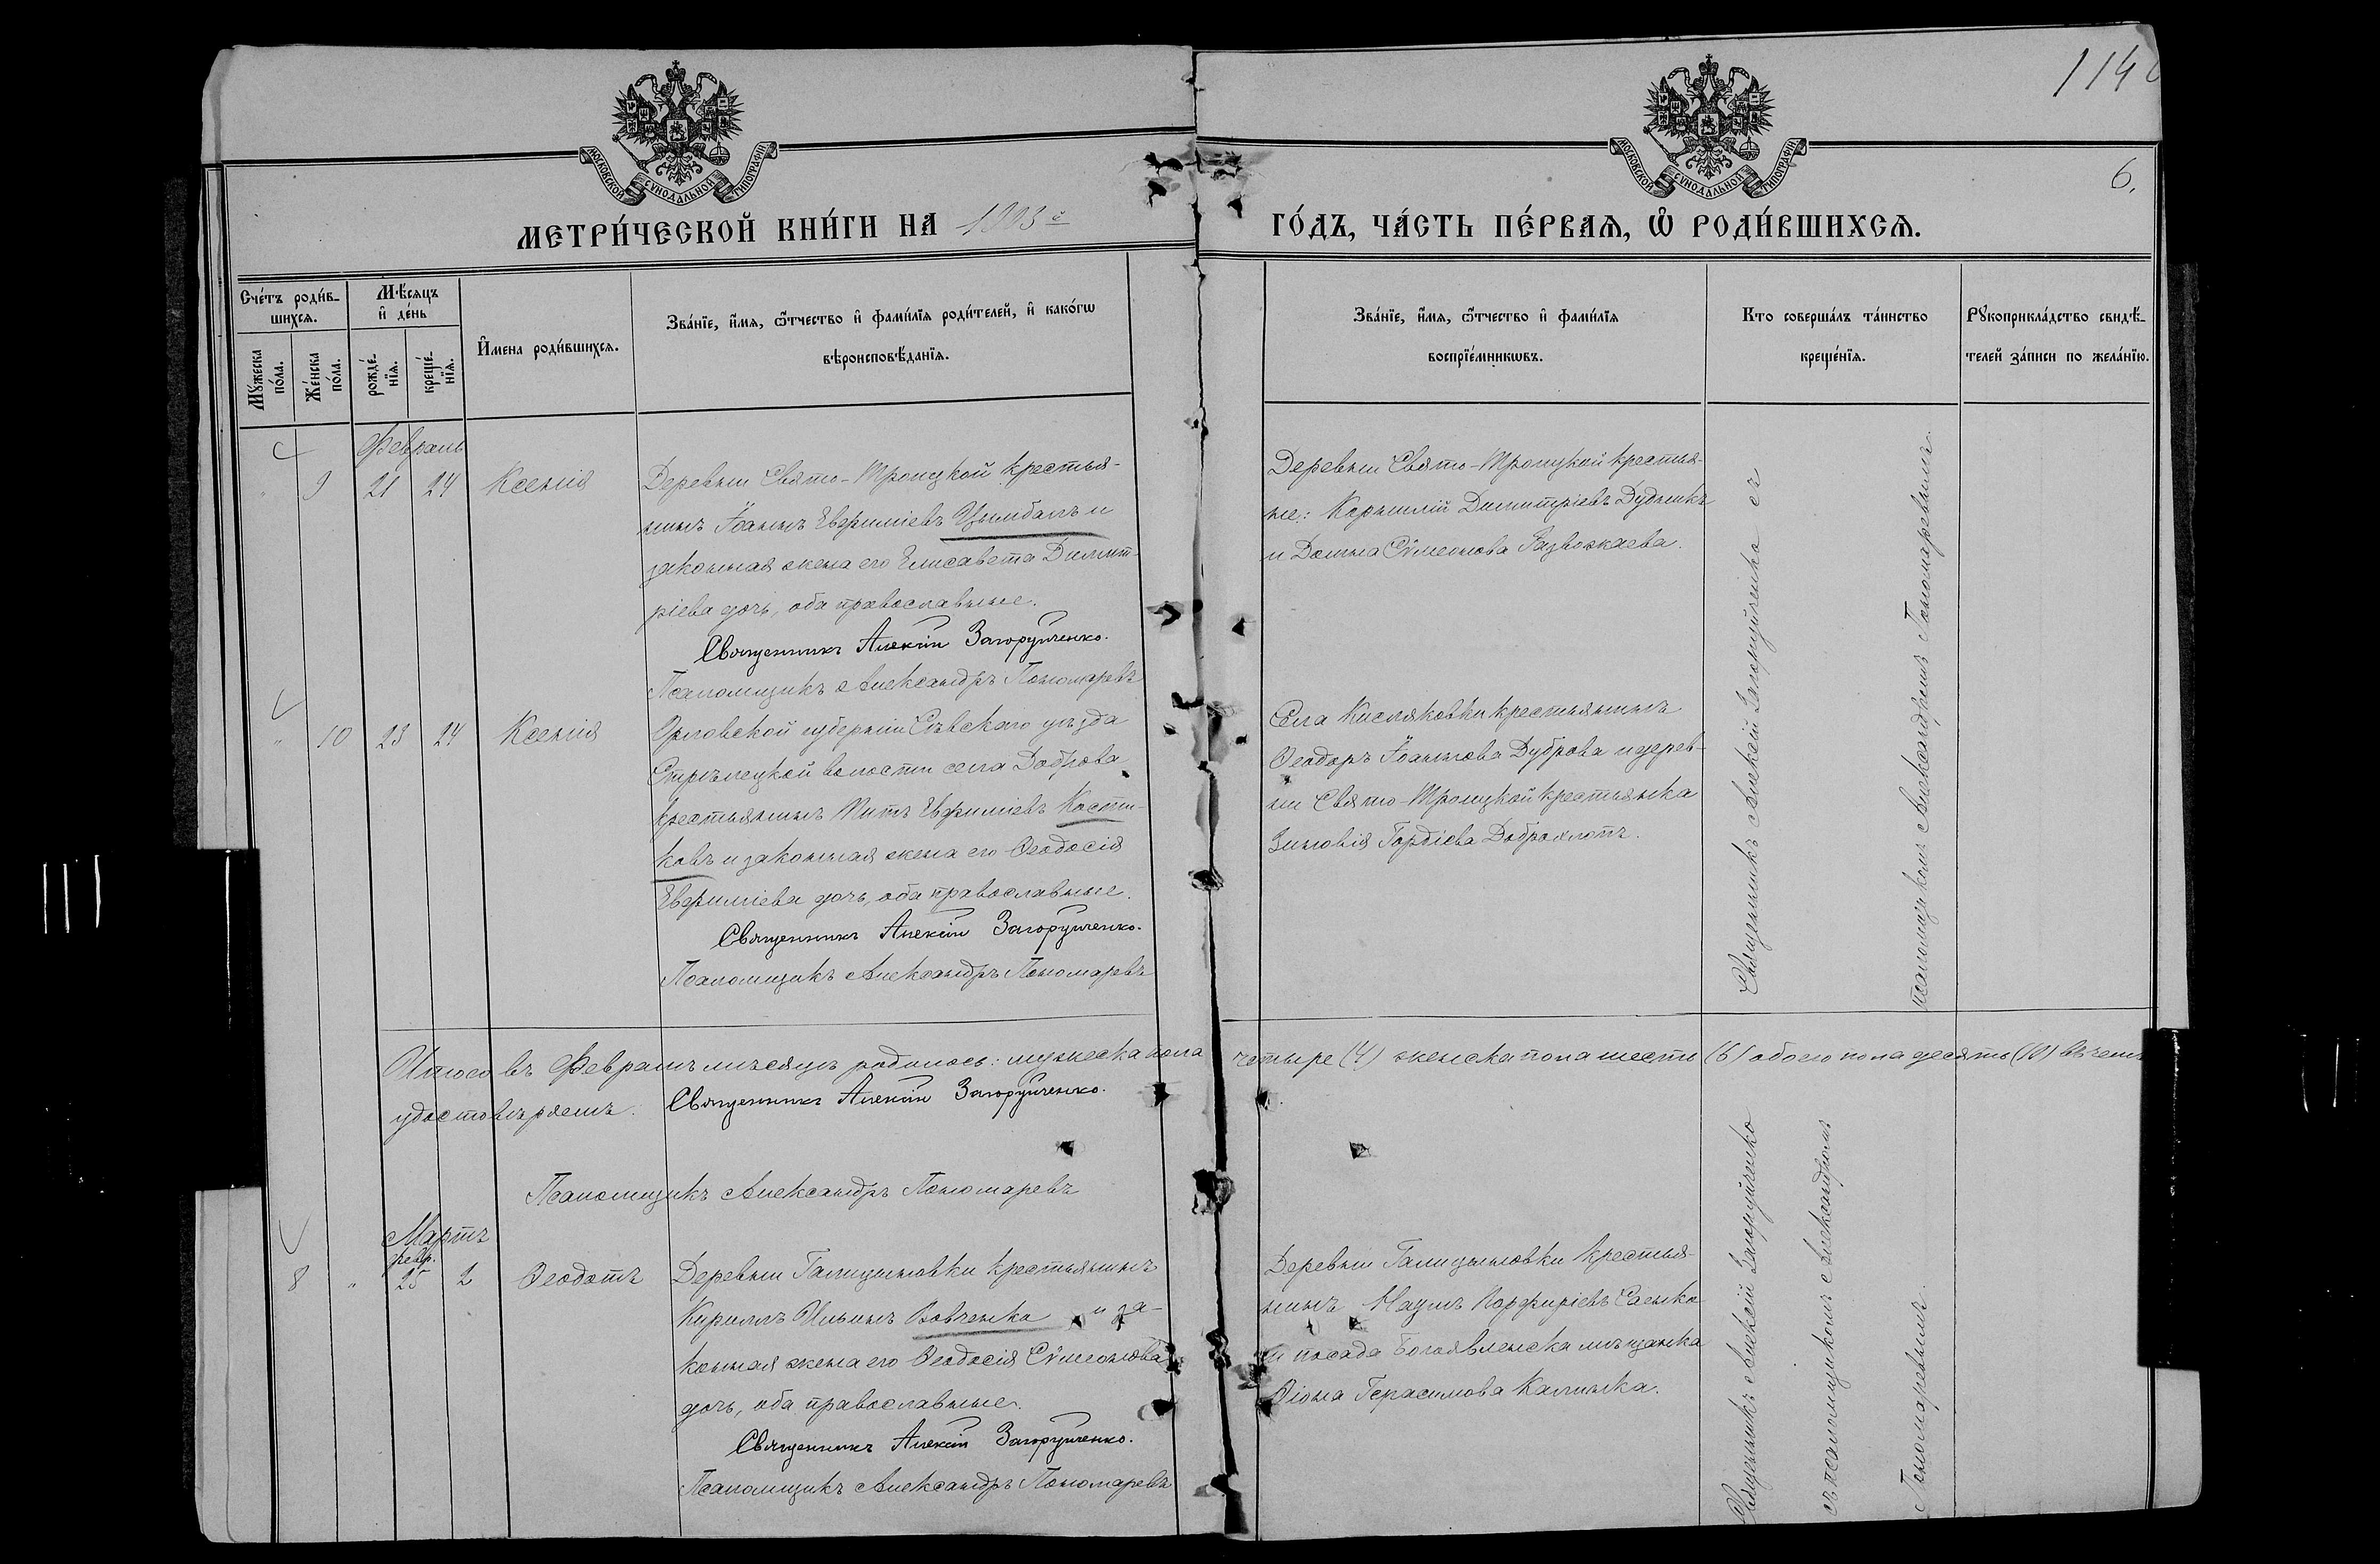 114
6.
МОСКОВСКОЙ СѴНОДАЛЬНОЙ ТИПОГРАФІИ
МОСКОВСКОЙ СѴНОДАЛЬНОЙ ТИПОГРАФІИ
МЕТРИ́ЧЕСКОЙ КНИ́ГИ НА
ГО́ДЪ, ЧА́СТЬ ПЕ́РВАѦ, Ѡ҆ РОДИ́ВШИХСѦ.
Сче́тъ роди́в-
шихсѧ.
Мꙋ́жеска по́ла.
Же́нска по́ла.
Мѣ́сѧцъ
и҆ де́нь
рожде́-
нїѧ.
креще́-
нїѧ.
И҆мена роди́вшихсѧ.
Зва́нїе, и҆́мѧ, ѻ҆́тчество и҆ фами́лїѧ роди́телей, и҆ како́гѡ
вѣроисповѣ́данїѧ.
Зва́нїе, и҆́мѧ, ѻ҆́тчество и҆ фами́лїѧ
воспрїе́мникѡвъ.
Кто соверша́лъ та́инство
креще́нїѧ.
Рꙋкоприкла́дство свидѣ́-
телей за́писи по жела́нїю.
Февраль
" 9 21 24 Ксенія
Деревни Свято-Троицкой крестья-
нинъ Іоаннъ Евфиміевъ Цымбалъ и
законная жена его Елисавета Димит-
ріева дочь, оба православные.
Священникъ Алексій Загоруйченко.
Псаломщикъ Александръ Пономаревъ
Деревни Свято-Троицкой крестья-
не: Корнилій Димитріевъ Дудникъ
и Домна Сѵмеонова Развозжаева.
Священникъ Алексій Загоруйченко съ
псаломщикомъ Александромъ Пономаревымъ.
" 10 23 24 Ксенія
Орловской губерніи Сѣвскаго уѣзда
Стрѣлецкой волости села Доброва
крестьянинъ Титъ Евфиміевъ Кости-
ковъ и законная жена его Ѳеодосія
Евфиміева дочь, оба православные.
Священникъ Алексій Загоруйченко.
Псаломщикъ Александръ Пономаревъ
Села Кисляковки крестьянинъ
Ѳеодоръ Іоанновъ Дуброва и дерев-
ни Свято-Троицкой крестьянка
Зиновія Гордіева Доброхлотъ.
Итого въ Февралѣ мѣсяцѣ родилось: мужеска пола четыре (4) женска пола шесть (6) обоего пола десять (10) въ чемъ
удостовѣряемъ. Священникъ Алексій Загоруйченко.
Псаломщикъ Александръ Пономаревъ
Мартъ
февр.
8 " 25 2 Ѳеодотъ
Деревни Галицыновки крестьянинъ
Кириллъ Ильинъ Вовченко и за-
конная жена его Ѳеодосія Сѵмеонова
дочь, оба православные.
Священникъ Алексій Загоруйченко.
Псаломщикъ Александръ Пономаревъ
Деревни Галицыновки крестья-
нинъ Наумъ Порфиріевъ Саенко
и посада Богоявленска мѣщанка
Ѳіона Герасимова Калинка.
Священникъ Алексій Загоруйченко
съ псаломщикомъ Александромъ
Пономаревымъ.